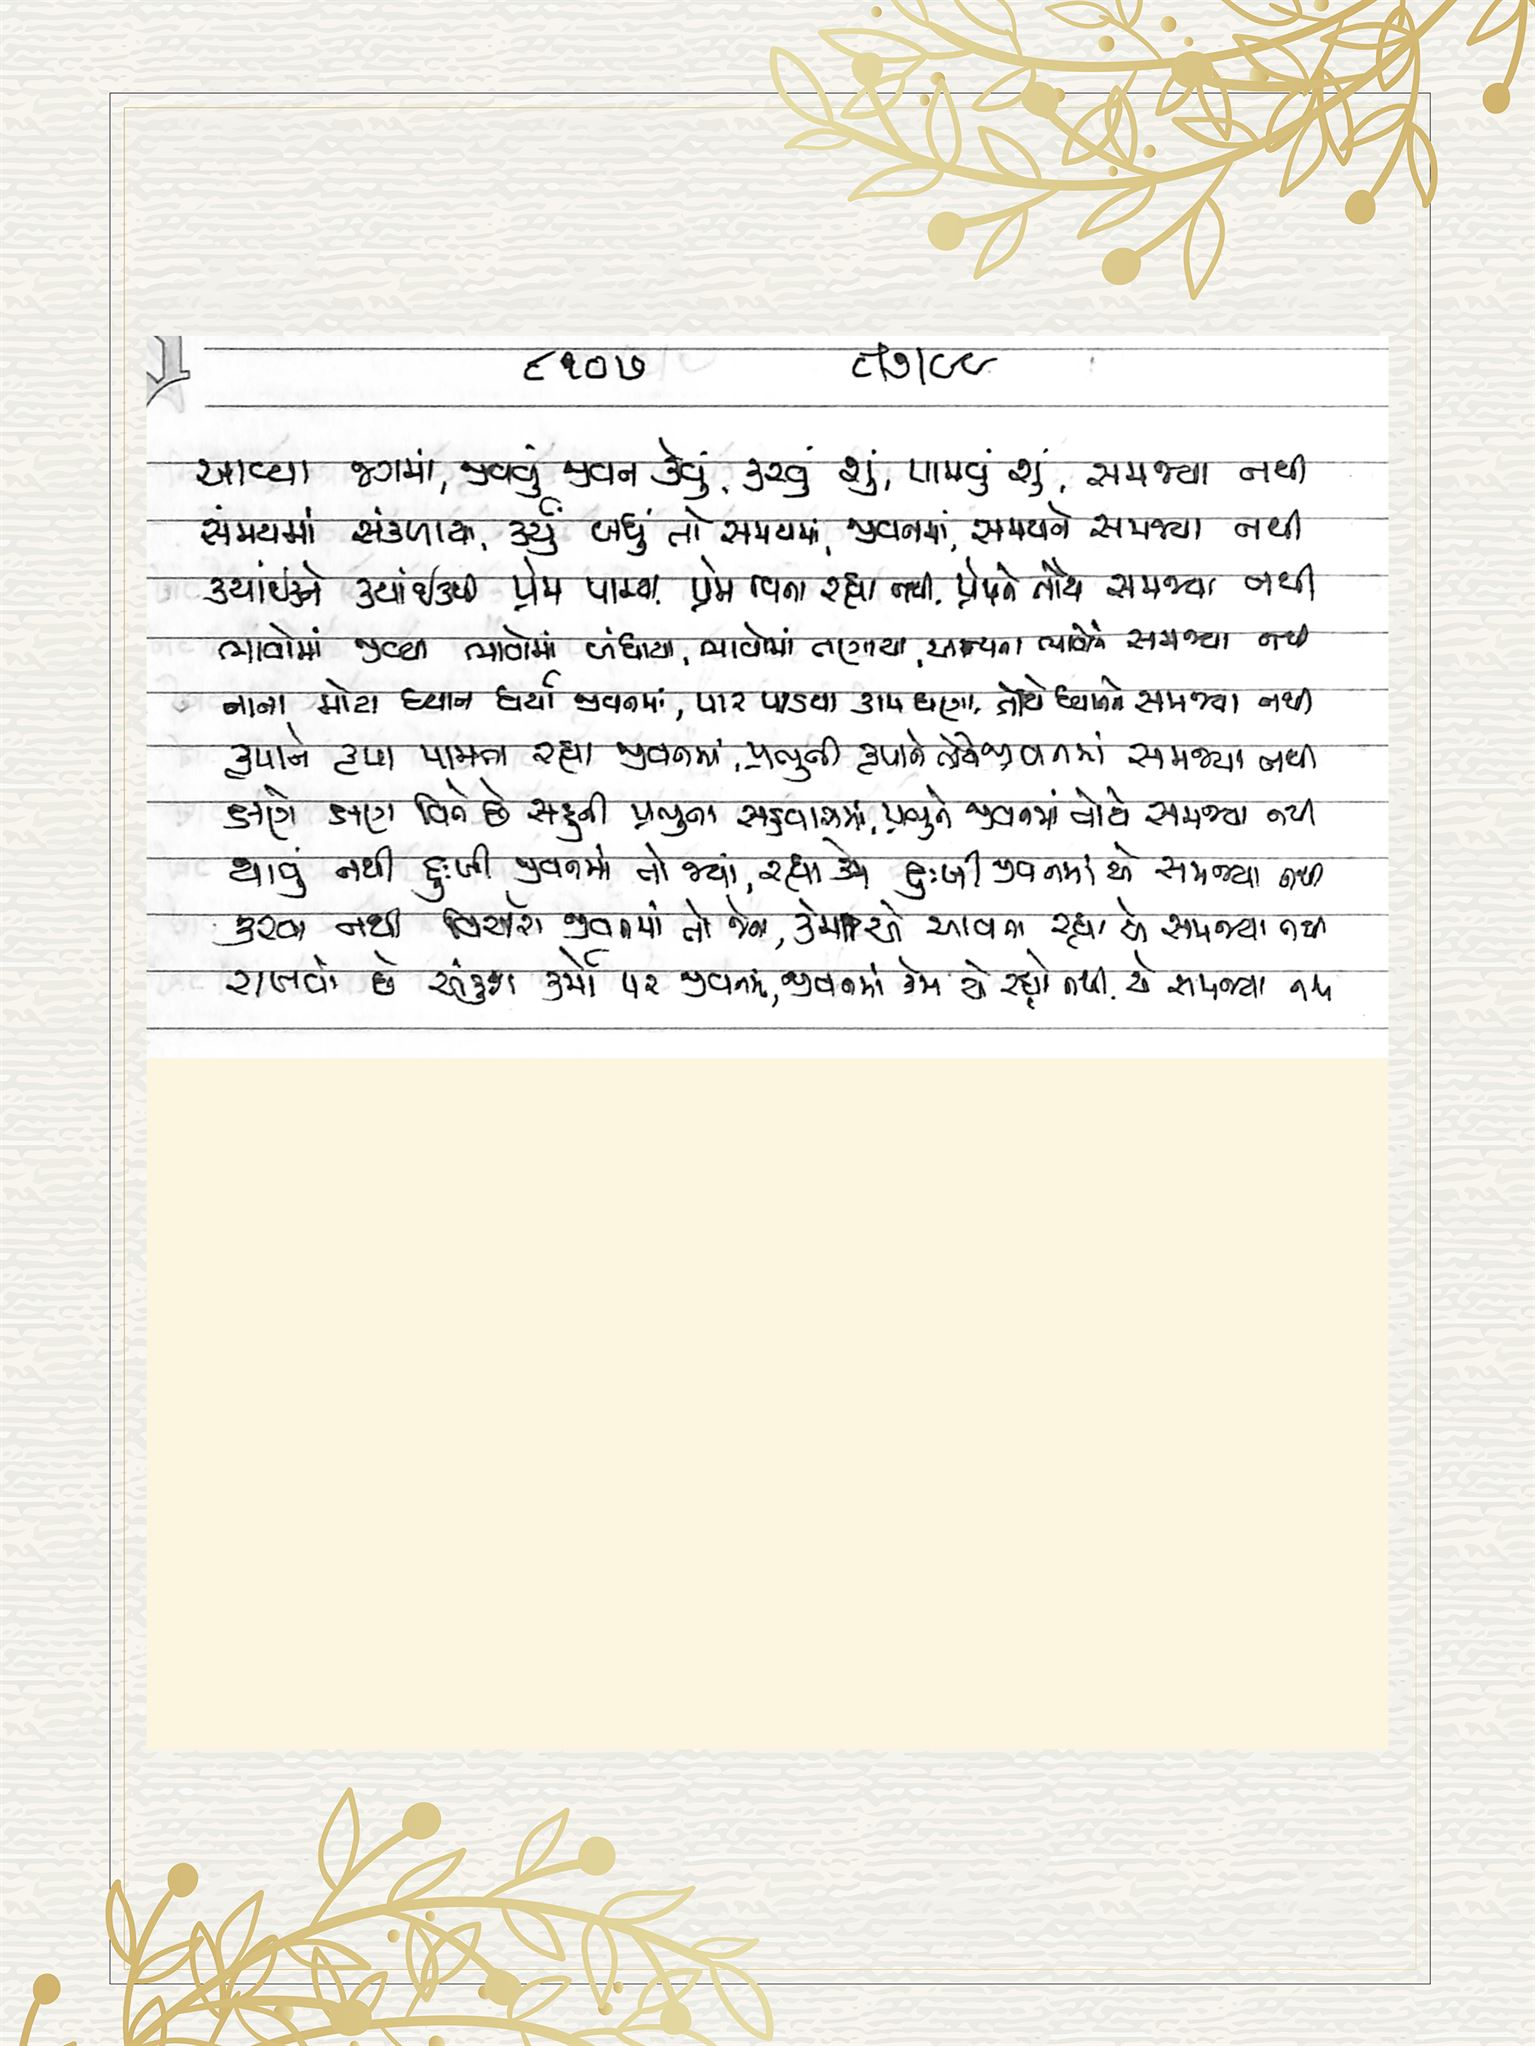 ૮૧૦૭ ૮/૭/૯૯
આવ્યા જગમાં, જીવવું જીવન કેવું, કરવું શું, પામવું શું, સમજ્યા નથી
સંમયમાં સંકળાઈ, કર્યું બધું તો સમયમાં, જીવનમાં, સમયને સમજ્યા નથી
ક્યાંઈકને ક્યાંઈકથી પ્રેમ પામ્યા, પ્રેમ વિના રહ્યા નથી, પ્રેમને તોયે સમજ્યા નથી
ભાવોમાં જીવ્યા ભાવોમાં બંધાયા, ભાવોમાં તણાયા, અન્યના ભાવોને સમજ્યા નથી
નાના મોટા ધ્યાન ધર્યા જીવનમાં, પાર પાડવા કામ ઘણા, તોયે ધ્યાનને સમજ્યા નથી
કૃપાને કૃપા પામતા રહ્યા જીવનમાં, પ્રભુની કૃપાને તોયે જીવનમાં સમજ્યા નથી
ક્ષણે ક્ષણ વિતે છે સહુની પ્રભુના સહવાસમાં, પ્રભુને જીવનમાં તોયે સમજ્યા નથી
થાવું નથી દુઃખી જીવનમાં તો જ્યાં, રહ્યા કેમ દુઃખી જીવનમાં એ સમજ્યા નથી
કરવા નથી વિચારો જીવનમાં તો જેના, કેમ એ આવતા રહ્યા એ સમજ્યા નથી
રાખવો છે અંકુશ કર્મો પર જીવનમાં, જીવનમાં કેમ એ રહ્યો નથી, એ સમજ્યા નથી